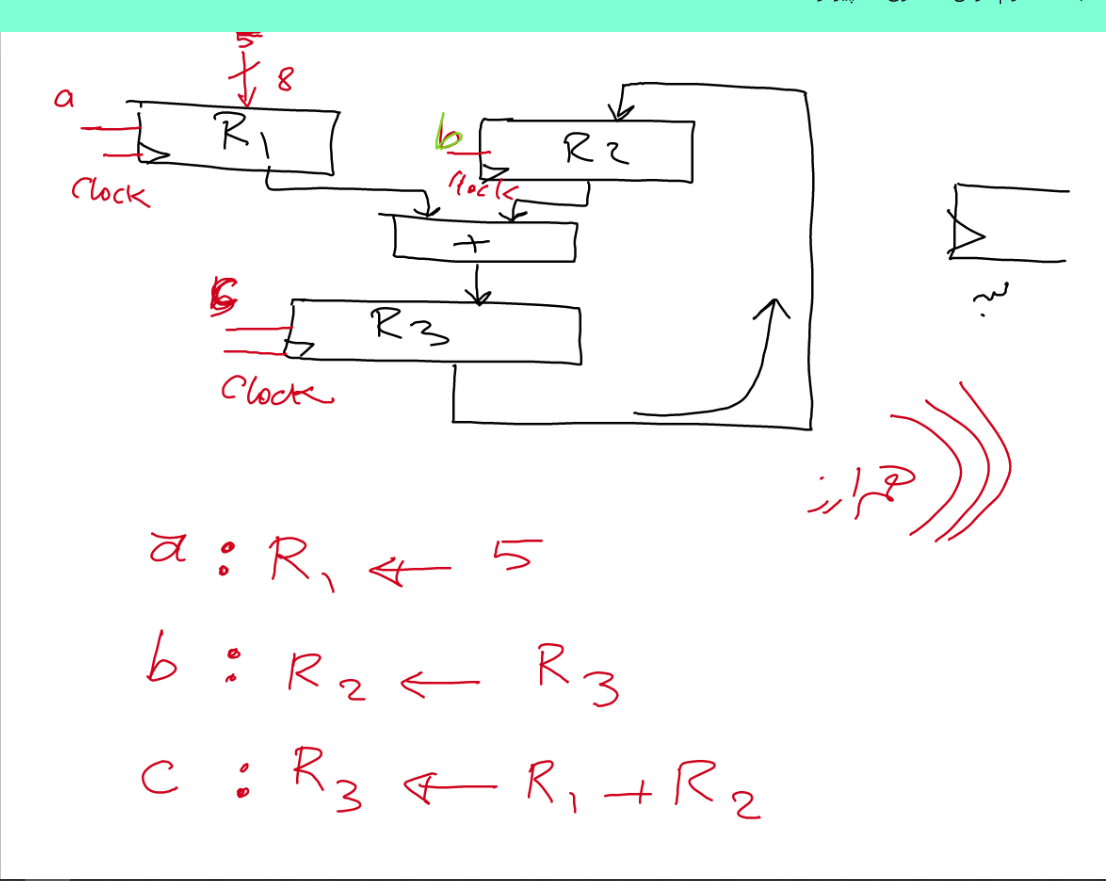 5
8
a
R1
Clock
b
R2
Clock
+
R3
Clock
همراز
a : R1 ← 5
b : R2 ← R3
c : R3 ← R1 + R2